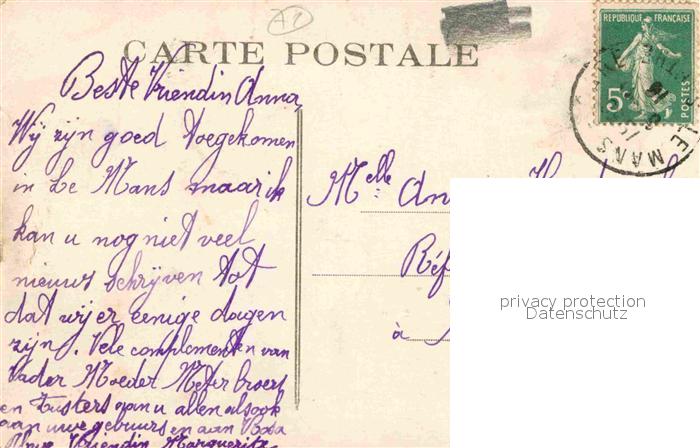 CARTE POSTALE
REPUBLIQUE FRANÇAISE
5c
POSTES
LE MANS
Beste Vriendin Anna
Wij zijn goed toegekomen
in Le Mans maar ik
kan u nog niet veel
nieuws schrijven tot
dat wij er eenige dagen
zijn. Vele complementen van
Vader Moeder Meter broers
en Zusters aan u allen alsook
aan uwe gebuurs en aan
Uwe Vriendin Marguerite
Melle
Réf
à
privacy protection
Datenschutz